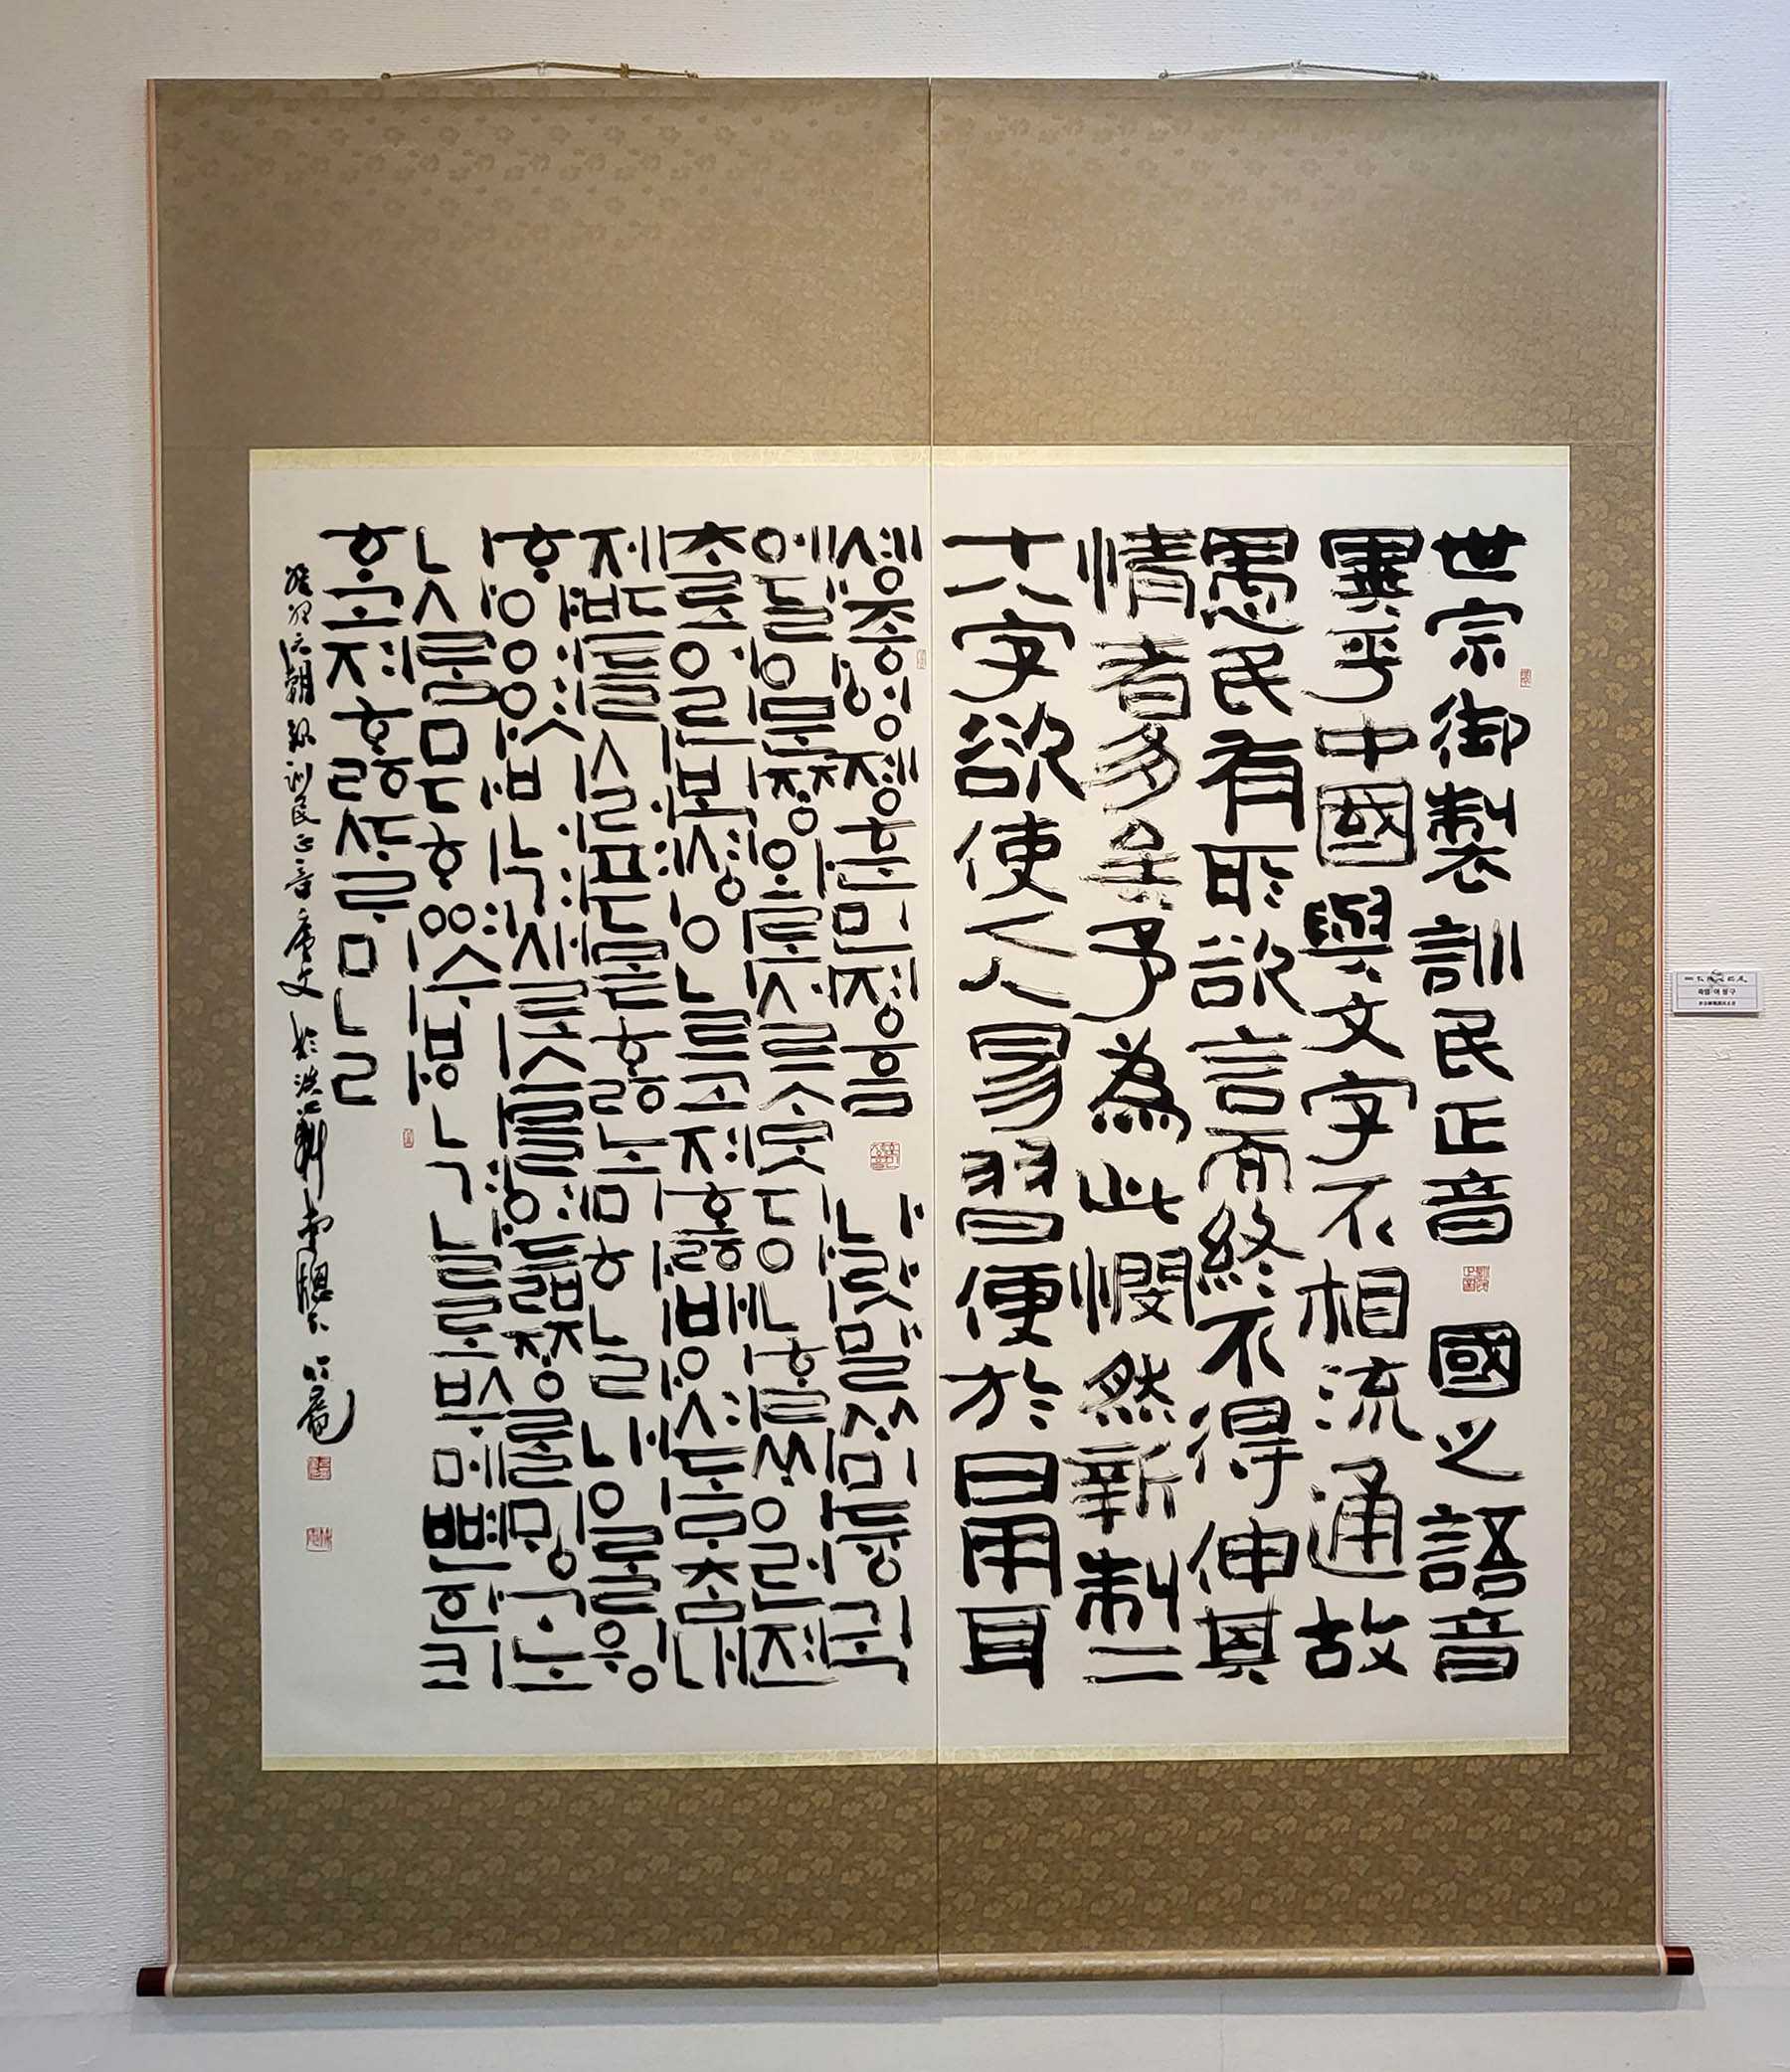 世宗御製訓民正音 國之語音
異乎中國與文字不相流通故
愚民有所欲言而終不得伸其
情者多矣予為此憫然新制二
十八字欲使人人易習便於日用耳
솅종엉졩훈민졍음 나랏말ᄊᆞ미듕귁
에달아문ᄍᆞᆼ와로서르ᄉᆞᄆᆞᆺ디아니ᄒᆞᆯᄊᆡ이런젼
ᄎᆞ로어린ᄇᆡᆨ셩이니르고져홇배이셔도ᄆᆞᄎᆞᆷ내
제ᄠᅳ들시러펴디몯ᄒᆞᇙ노미하니라내이ᄅᆞᆯ윙
ᄒᆞ야어엿비너겨새로스믈여듧ᄍᆞᆼᄅᆞᆯᄆᆡᆼᄀᆞ노
니사ᄅᆞᆷ마다ᄒᆡᅇᅧ수ᄫᅵ니겨날로ᄡᅮ메뼌한킈
ᄒᆞ고져ᄒᆞᇙᄯᆞᄅᆞ미니라
訓民正音序文